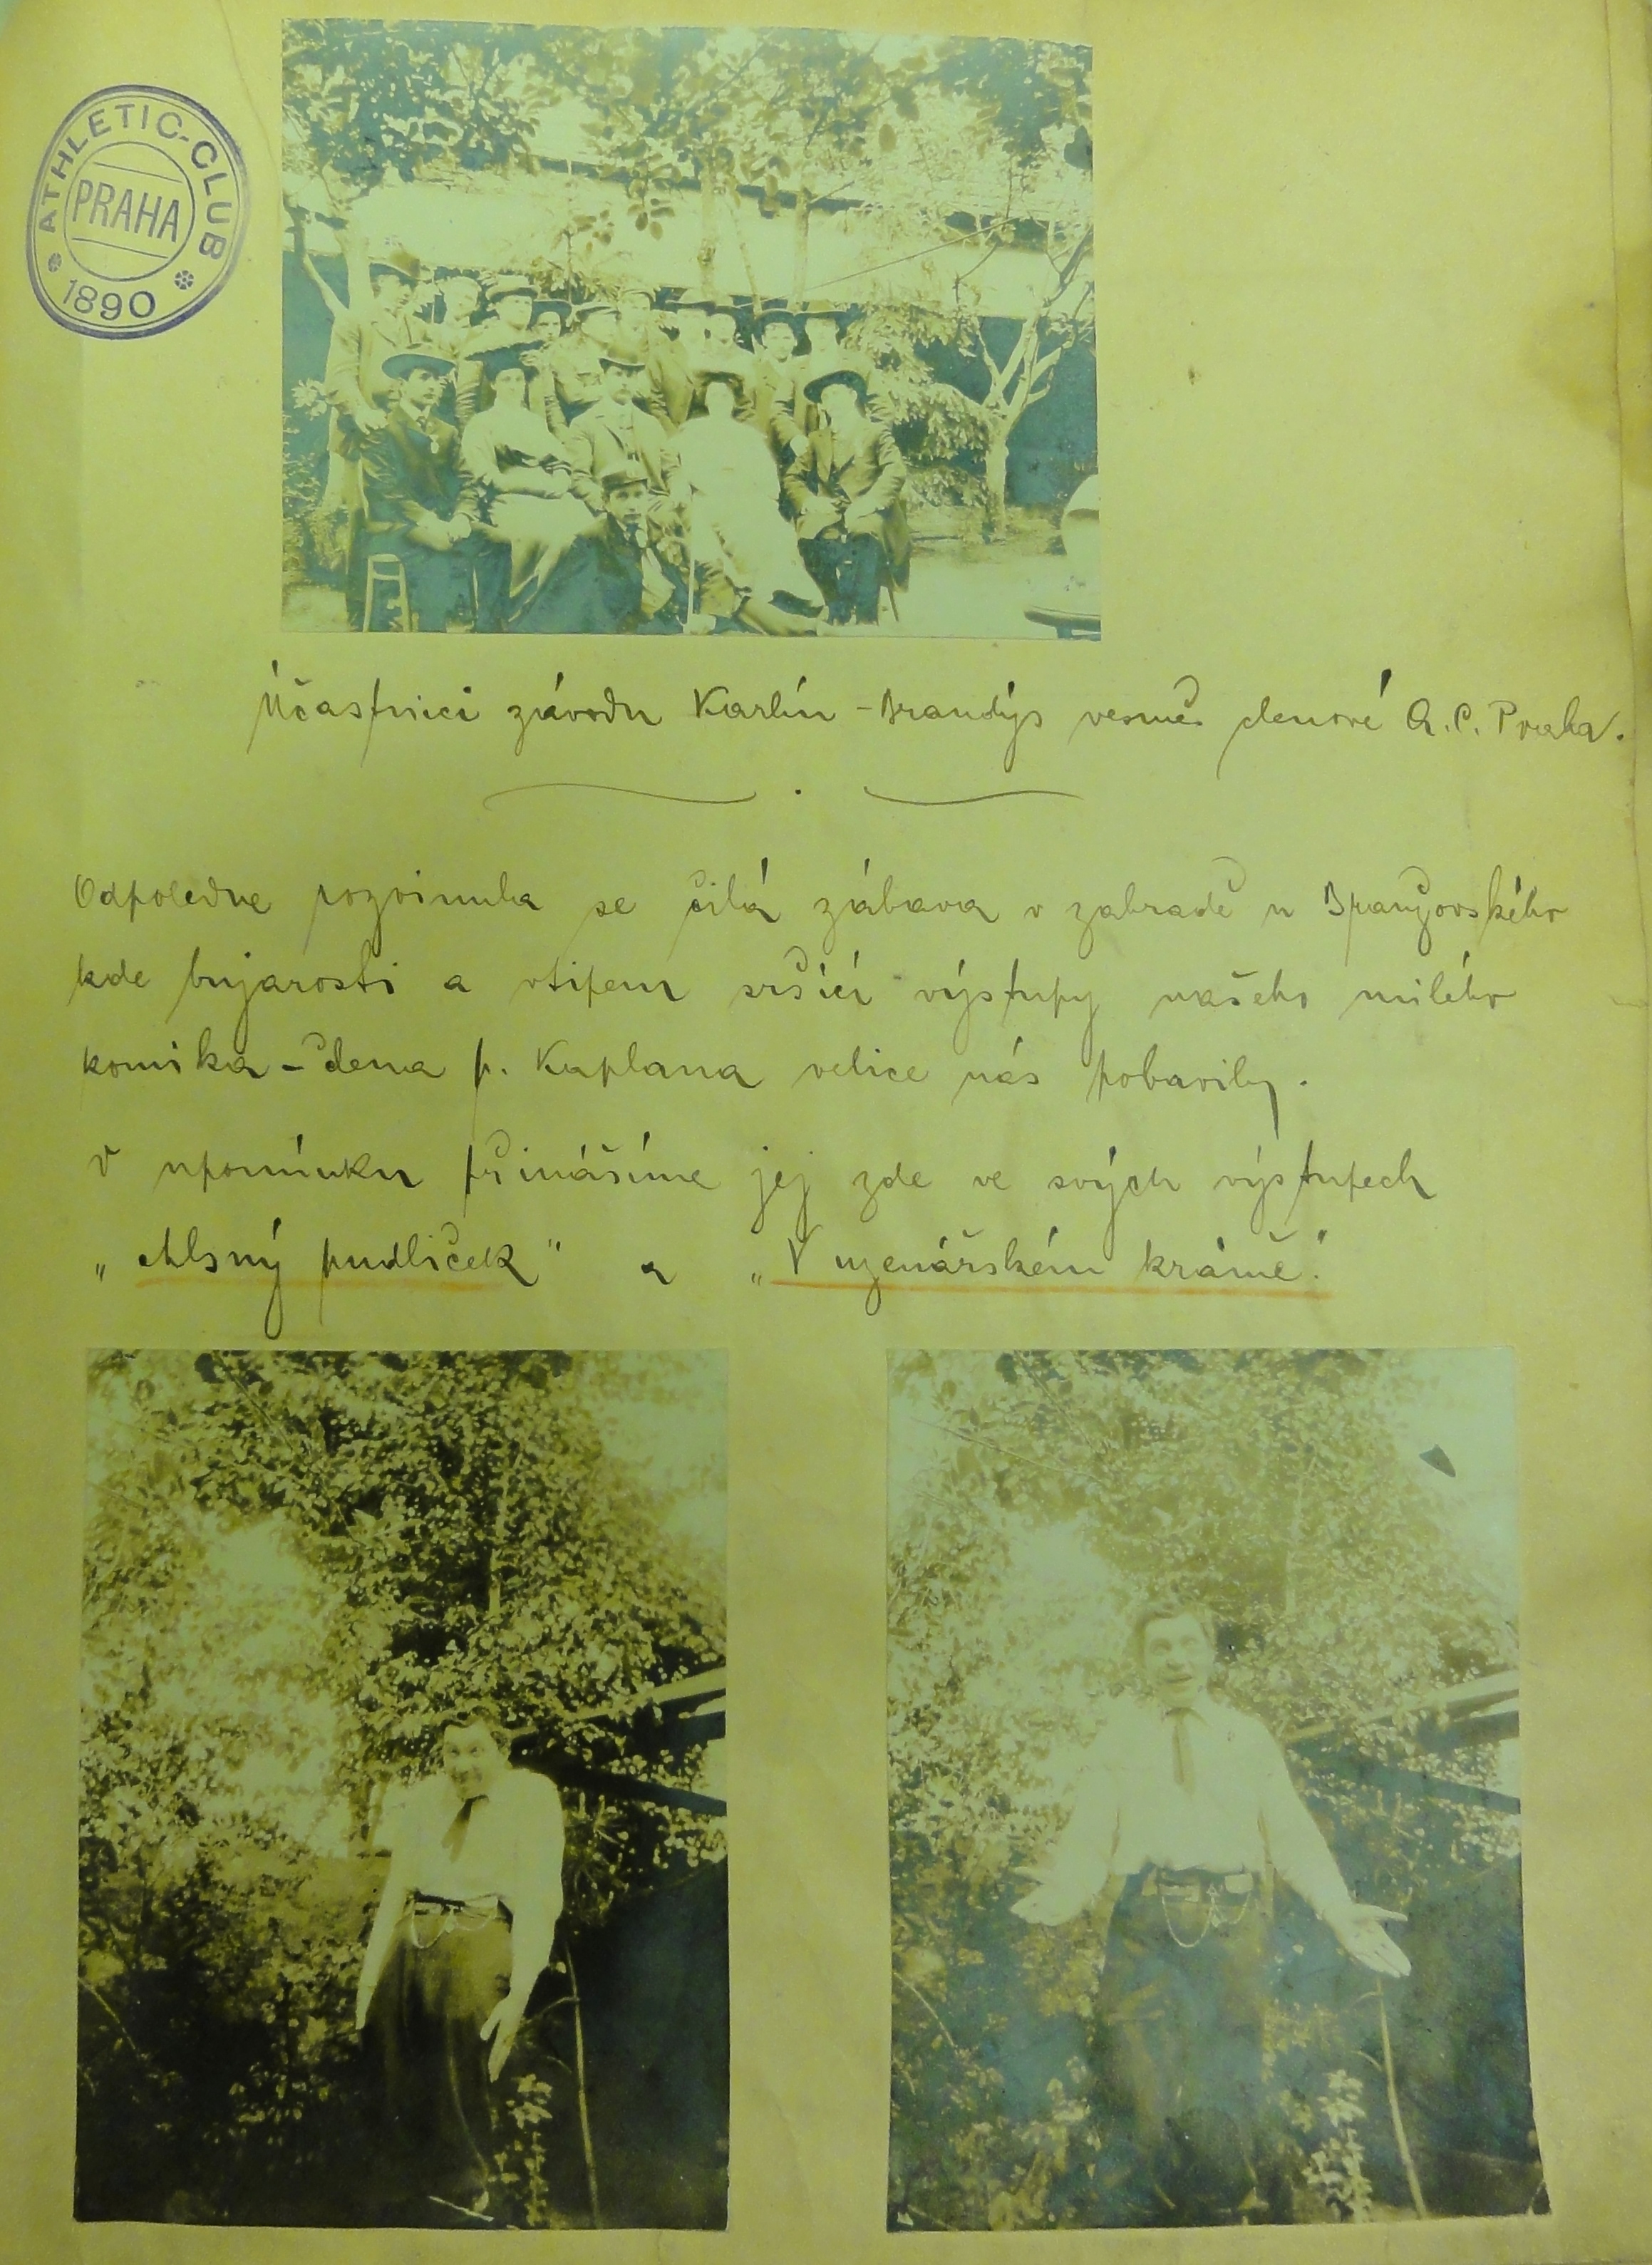 ATHLETIC-CLUB
PRAHA
1890
Účastníci závodu Karlín - Brandýs vesměs členové A. C. Praha.
Odpoledne rozvinula se čilá zábava v zahradě u
kde bujarostí a vtipem sršící výstupy našeho milého
komika - člena p. Kaplana velice nás pobavily.
V upomínku přinášíme jej zde ve svých výstupech
„Mlsný pudlíček" a „V uzenářském krámě."